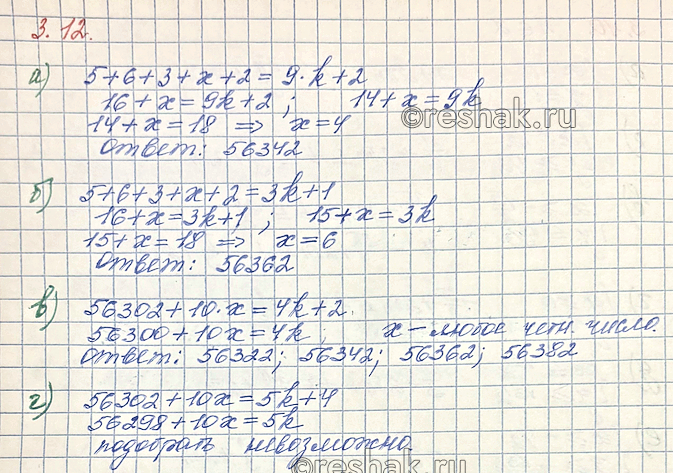 3.12.
а) 5+6+3+x+2=9·k+2
16+x=9k+2; 14+x=9k
14+x=18 => x=4
©reshak.ru
Ответ: 56342
б) 5+6+3+x+2=3k+1
16+x=3k+1; 15+x=3k
15+x=18 => x=6
Ответ: 56362
в) 56302+10·x=4k+2.
56300+10x=4k; x – любое четн. число.
Ответ: 56322; 56342; 56362; 56382
г) 56302+10x=5k+4
56298+10x=5k
подобрать невозможно.
©reshak.ru